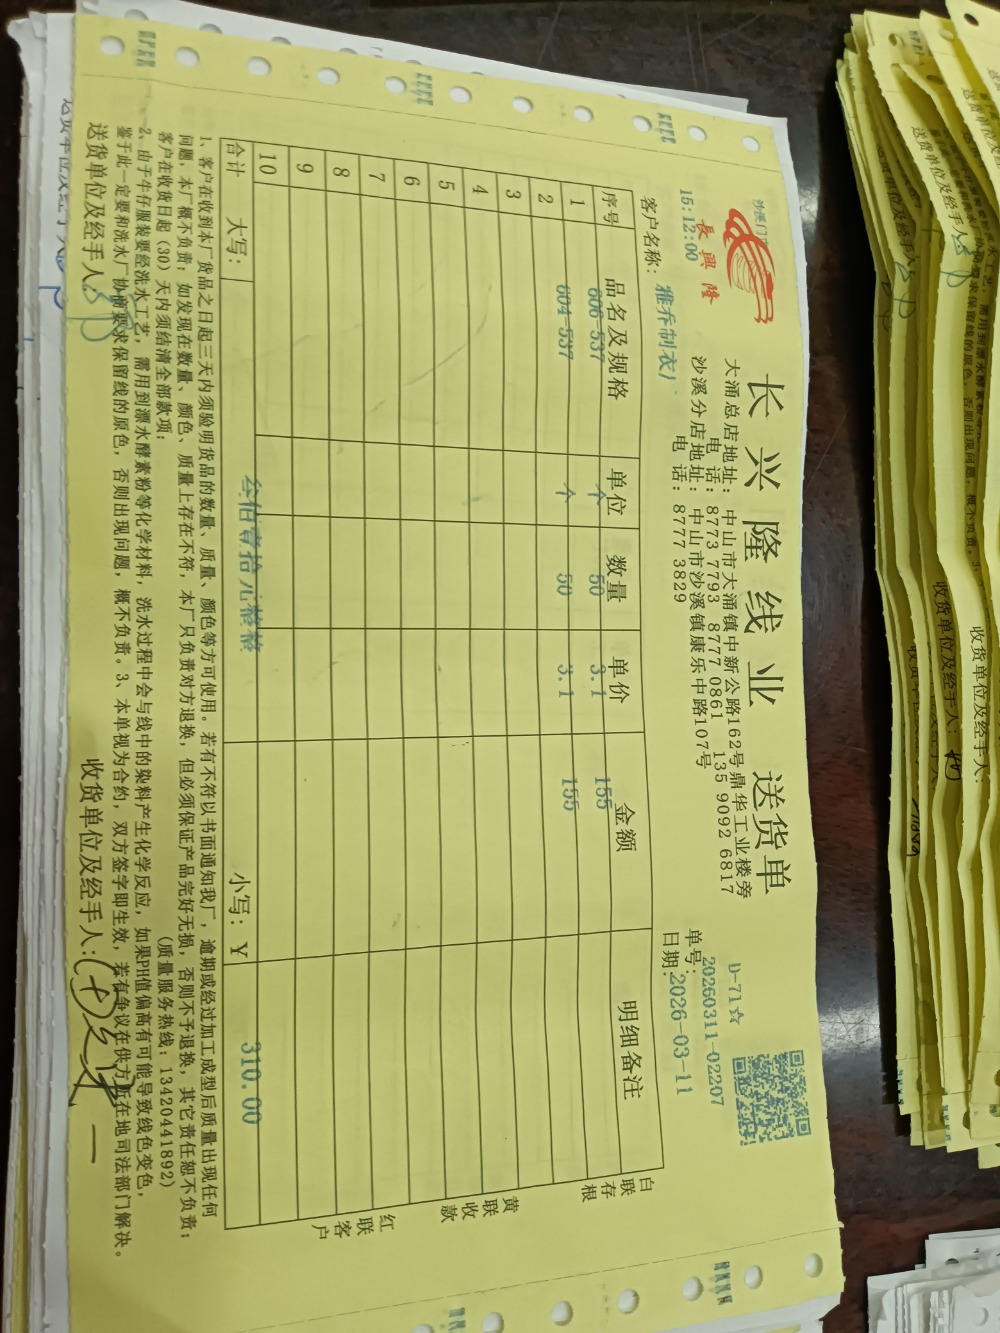 长兴隆线业 送货单
長興隆
沙溪门
15:12:00
大涌总店地址: 中山市大涌镇中新公路162号鼎华工业楼旁
电 话: 8773 7793 8777 0861 135 9092 6817
沙溪分店地址: 中山市沙溪镇康乐中路107号
电 话: 8777 3829
D-71☆
单号: 20260311-02207
日期: 2026-03-11
客户名称: 雅乔制衣厂
序号 品名及规格 单位 数量 单价 金额 明细备注
1 606-537 个 50 3.1 155
2 604-537 个 50 3.1 155
3
4
5
6
7
8
9
10
合计 大写: 叁佰壹拾元整 小写: ¥ 310.00
白联存根
黄联收款
红联客户
1、客户在收到本厂货品之日起三天内须验明货品的数量、质量、颜色等方可使用。若有不符以书面通知我厂,逾期或经过加工成型后质量出现任何
问题,本厂概不负责;如发现在数量、颜色、质量上存在不符,本厂只负责对方退换,但必须保证产品完好无损,否则不予退换,其它责任恕不负责;
客户在收货日起(30)天内须结清全部款项; (质量服务热线:13420441892)
2、由于牛仔服装要经洗水工艺,需用到漂水酵素粉等化学材料,洗水过程中会与线中的染料产生化学反应,如果PH值偏高有可能导致线色变色,
鉴于此一定要和洗水厂协商要求保留线的原色,否则出现问题,概不负责。3、本单视为合约,双方签字即生效,若有争议在供方所在地司法部门解决。
送货单位及经手人: 收货单位及经手人:
送货单位及经手人
收货单位及经手人:
送货单位及经手人
收货单位及经手人: